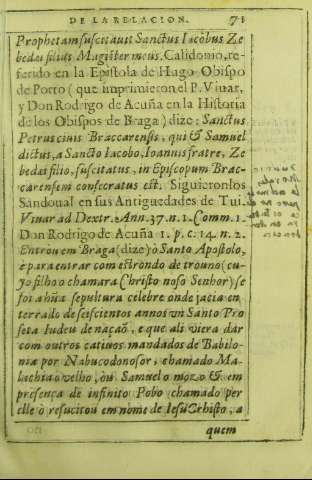 DE LA RELACION. 71
Prophetam suscitauit Sanctus Iacobus Ze
bedei filius Magister meus. Calidonio, re-
ferido en la Epistola de Hugo Obispo
de Porto (que imprimieron el P. Viuar,
y Don Rodrigo de Acuña en la Historia
de los Obispos de Braga) dize: Sanctus
Petrus ciuis Braccarensis, qui & Samuel
dictus, a Sancto Iacobo, Ioannis fratre, Ze
bedei filio, suscitatus, in Episcopum Brac-
carensem consecratus est. Siguieronlos
Sandoual en sus Antiguedades de Tui.
Viuar ad Dextr. Ann. 37. n. 1. Comm. 1.
Don Rodrigo de Acuña 1. p. c. 14. n. 2.
Entrou em Braga (dize) ò Santo Apostolo,
e para entrar com estrondo de trouno (cu-
jo filho o chamara Christo noso Senhor) se
foi ahũa sepultura celebre onde jacia en-
terrado de seiscientos annos vn Santo Pro
feta Iudeu de naçaõ, e que ali viera dar
com outros catiuos mandados de Babilo-
nia por Nabucodonosor, chamado Ma-
lachia o velho, ou Samuel o moço & em
presença de infinito Pobo chamado per
elle ò resucitou em nome de Iesũ Crhisto, a
quem